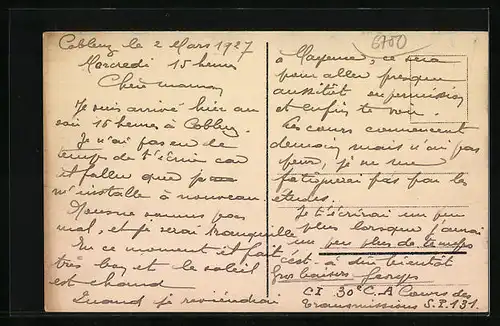 Coblenz le 2 Mars 1927
Mercredi 15 heures
Chère maman
Je suis arrivé hier au
soir 16 heures à Coblenz.
Je n'ai pas eu de
temps de t'écrire car
il fallu que je
m'installe à nouveau.
Nous ne sommes pas
mal, et je serai tranquille
En ce moment il fait
très bon et le soleil
est chaud
Quand je reviendrai
6700
à Mayence, ce sera
pour aller presque
aussitôt en permission
et enfin te voir.
Les cours commencent
demain mais n'ai pas
peur, je ne me
fatiguerai pas par les
études.
Je t'écrirai un peu
plus lorsque j'aurai
un peu plus de temps
c'est-à-dire bientôt
Gros baisers Georges
C.I. 30e C.A Cours des
Transmissions S.P.131.